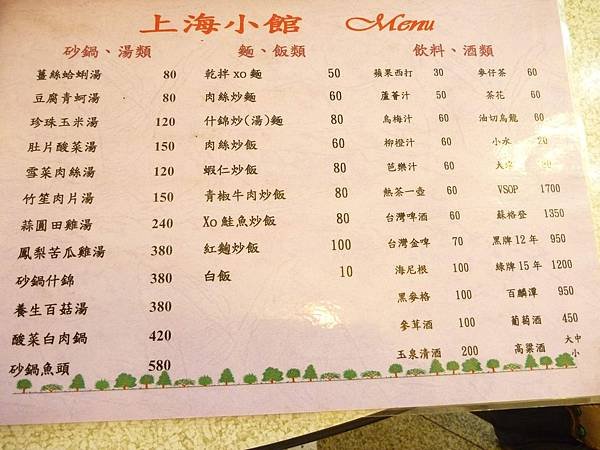 上海小館 Menu
砂鍋、湯類
薑絲蛤蜊湯 80
豆腐青蚵湯 80
珍珠玉米湯 120
肚片酸菜湯 150
雪菜肉絲湯 120
竹笙肉片湯 150
蒜圓田雞湯 240
鳳梨苦瓜雞湯 380
砂鍋什錦 380
養生百菇湯 380
酸菜白肉鍋 420
砂鍋魚頭 580
麵、飯類
乾拌xo麵 50
肉絲炒麵 60
什錦炒(湯)麵 80
肉絲炒飯 60
蝦仁炒飯 80
青椒牛肉炒飯 80
Xo鮭魚炒飯 80
紅麴炒飯 100
白飯 10
飲料、酒類
蘋果西打 30
蘆薈汁 50
烏梅汁 60
柳橙汁 60
芭樂汁 60
熱茶一壺 60
台灣啤酒 60
台灣金啤 70
海尼根 100
黑麥格 100
參茸酒 100
玉泉清酒 200
麥仔茶 60
茶花 60
油切烏龍 60
小水 20
大
VSOP 1700
蘇格登 1350
黑牌12年 950
綠牌15年 1200
百齡潭 950
葡萄酒 450
高粱酒 大中小